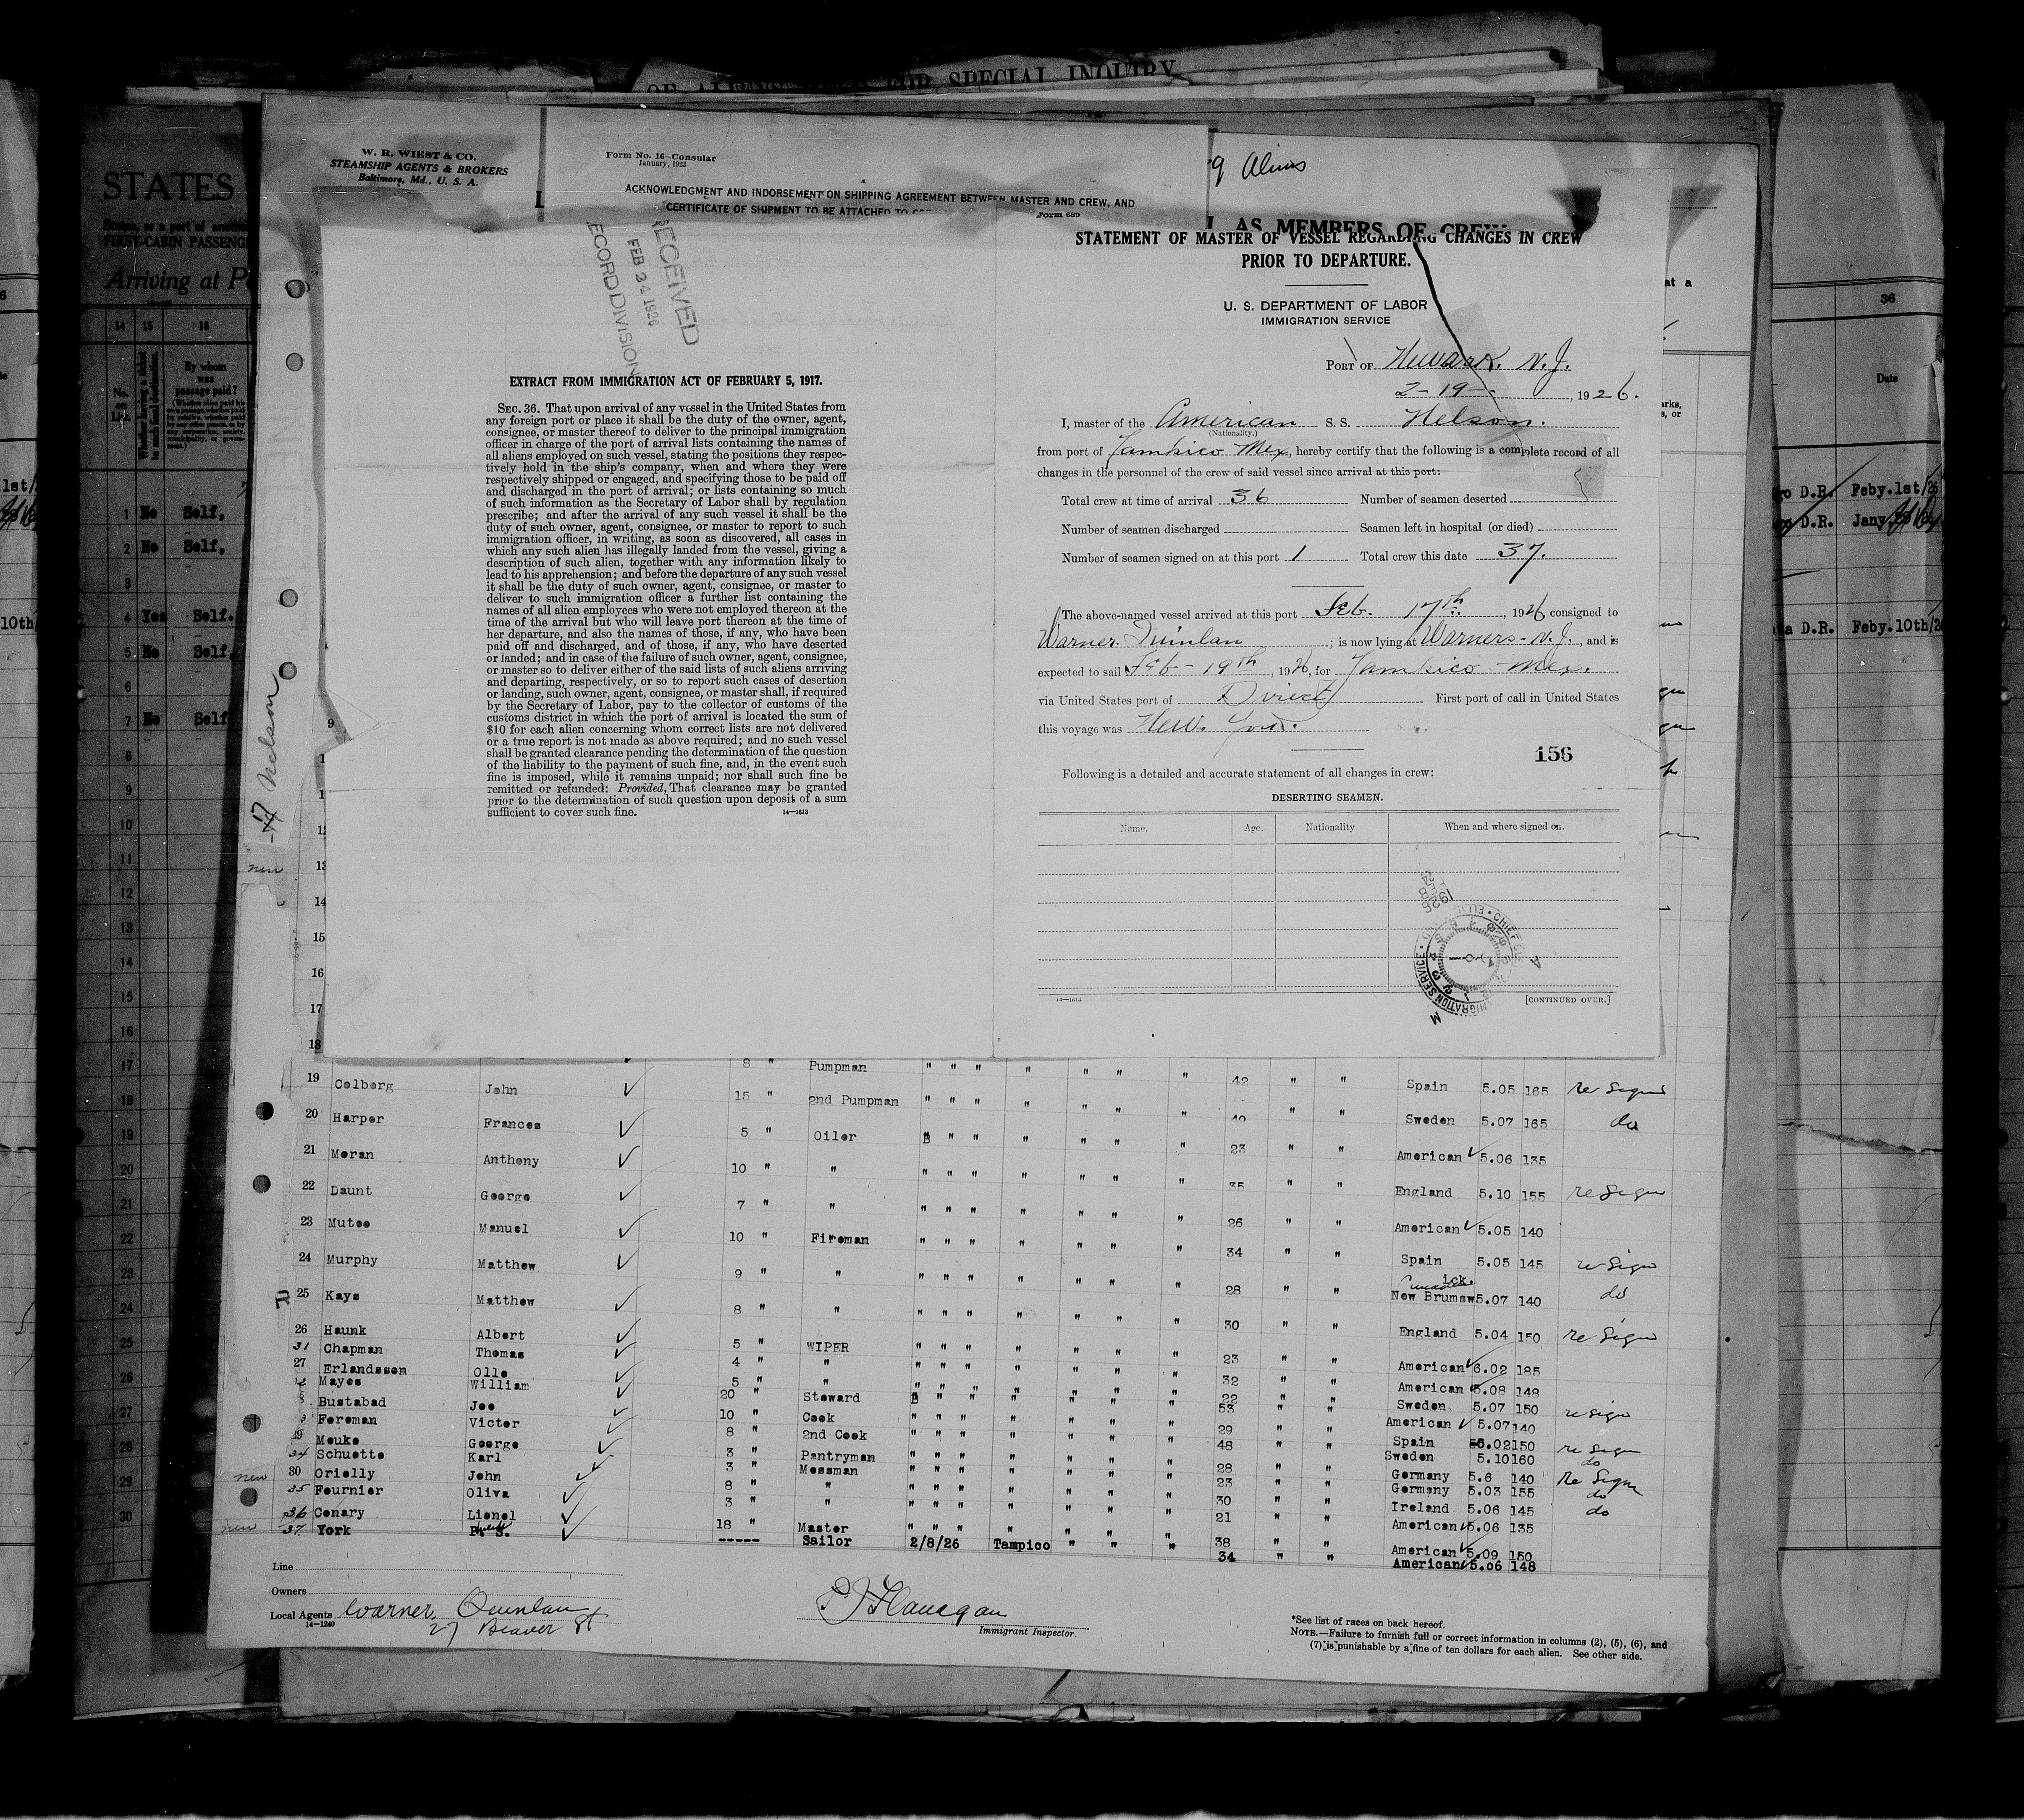 OF ALIENS FOR SPECIAL INQUIRY
STATES
FIRST-CABIN PASSENG
Arriving at P
14 15 16
No. on List.
By whom was passage paid?
1 No Self,
2 No Self,
3
4 Yes Self.
5 No Self,
6
7 No Self
8
9
10
11
12
13
14
15
16
17
18
19
20
21
22
23
24
25
26
27
28
29
30
W. R. WIEST & CO.
STEAMSHIP AGENTS & BROKERS
Baltimore, Md., U. S. A.
Form No. 16—Consular
January, 1923
ACKNOWLEDGMENT AND INDORSEMENT ON SHIPPING AGREEMENT BETWEEN MASTER AND CREW, AND
CERTIFICATE OF SHIPMENT TO BE ATTACHED TO
Aliens
AS MEMBERS OF CREW
RECEIVED
FEB 24 1926
RECORD DIVISION
EXTRACT FROM IMMIGRATION ACT OF FEBRUARY 5, 1917.
SEC. 36. That upon arrival of any vessel in the United States from
any foreign port or place it shall be the duty of the owner, agent,
consignee, or master thereof to deliver to the principal immigration
officer in charge of the port of arrival lists containing the names of
all aliens employed on such vessel, stating the positions they respec-
tively hold in the ship's company, when and where they were
respectively shipped or engaged, and specifying those to be paid off
and discharged in the port of arrival; or lists containing so much
of such information as the Secretary of Labor shall by regulation
prescribe; and after the arrival of any such vessel it shall be the
duty of such owner, agent, consignee, or master to report to such
immigration officer, in writing, as soon as discovered, all cases in
which any such alien has illegally landed from the vessel, giving a
description of such alien, together with any information likely to
lead to his apprehension; and before the departure of any such vessel
it shall be the duty of such owner, agent, consignee, or master to
deliver to such immigration officer a further list containing the
names of all alien employees who were not employed thereon at the
time of the arrival but who will leave port thereon at the time of
her departure, and also the names of those, if any, who have been
paid off and discharged, and of those, if any, who have deserted
or landed; and in case of the failure of such owner, agent, consignee,
or master so to deliver either of the said lists of such aliens arriving
and departing, respectively, or so to report such cases of desertion
or landing, such owner, agent, consignee, or master shall, if required
by the Secretary of Labor, pay to the collector of customs of the
customs district in which the port of arrival is located the sum of
$10 for each alien concerning whom correct lists are not delivered
or a true report is not made as above required; and no such vessel
shall be granted clearance pending the determination of the question
of the liability to the payment of such fine, and, in the event such
fine is imposed, while it remains unpaid; nor shall such fine be
remitted or refunded: Provided, That clearance may be granted
prior to the determination of such question upon deposit of a sum
sufficient to cover such fine.
14—1613
Form 689
STATEMENT OF MASTER OF VESSEL REGARDING CHANGES IN CREW
PRIOR TO DEPARTURE.
U. S. DEPARTMENT OF LABOR
IMMIGRATION SERVICE
PORT OF Newark. N.J.
2-19-, 1926.
I, master of the American S. S. Nelson.
(Nationality.)
from port of Tampico Mex, hereby certify that the following is a complete record of all
changes in the personnel of the crew of said vessel since arrival at this port:
Total crew at time of arrival 36 Number of seamen deserted
Number of seamen discharged Seamen left in hospital (or died)
Number of seamen signed on at this port 1 Total crew this date 37.
The above-named vessel arrived at this port Feb. 17th, 1926 consigned to
Warner Quinlan; is now lying at Warners-N.J., and is
expected to sail Feb-19th, 1926, for Tampico-Mex.
via United States port of Direct First port of call in United States
this voyage was New. York.
156
Following is a detailed and accurate statement of all changes in crew:
DESERTING SEAMEN.
Name. Age. Nationality. When and where signed on.
14—1613
[CONTINUED OVER.]
36
Date
D.R. Feby.1st/26
D.R. Jany
D.R. Feby.10th/2
Nelson
new
8 " Pumpman " " " " " " " 42 " " Spain 5.05 165 re signed
19 Colberg John 15 " 2nd Pumpman " " " " " " " " " Sweden 5.07 165 do
20 Harper Frances 5 " Oiler " " " " " " 23 " " American 5.06 135
21 Moran Anthony 10 " " " " " " " " " 35 " " England 5.10 155 re Sign
22 Daunt George 7 " " " " " " " " " 26 " " American 5.05 140
23 Mutoo Manuel 10 " Fireman " " " " " " " 34 " " Spain 5.05 145 re Sign
24 Murphy Matthew 9 " " " " " " " " " 28 " " New Brumswick. 5.07 140 do
25 Kays Matthew 8 " " " " " " " " " 30 " " England 5.04 150 re Sign
26 Haunk Albert 5 " WIPER " " " " " " " 23 " " American 6.02 185
31 Chapman Thomas 4 " " " " " " " " " 32 " " American 5.08 148
27 Erlandssen Olle 5 " " " " " " " " " 22 " " Sweden 5.07 150 re sign
Mayes William 20 " Steward " " " " " " 53 " " American 5.07 140
Bustabad Joe 10 " Cook " " " " " " " 29 " " Spain 5.02 150 re Sign
Foreman Victor 8 " 2nd Cook " " " " " " " 48 " " Sweden 5.10 160 do
29 Mouke George 3 " Pantryman " " " " " " " 28 " " Germany 5.6 140 Re Sign
34 Schuette Karl 3 " Messman " " " " " " " 23 " " Germany 5.03 155 do
new 30 Orielly John 8 " " " " " " " " " 30 " " Ireland 5.06 145 do
35 Fournier Oliva 3 " " " " " " " " " 21 " " American 5.06 135
36 Conary Lionel 18 " Master " " " " " " " 38 " " American 5.09 150
new 37 York S. ----- Sailor 2/8/26 Tampico " " " 34 " " American 5.06 148
Line
Owners
Local Agents Warner, Quinlan
27 Beaver St
14—1240
P J Flanagan
Immigrant Inspector.
*See list of races on back hereof.
NOTE.—Failure to furnish full or correct information in columns (2), (5), (6), and
(7) is punishable by a fine of ten dollars for each alien. See other side.